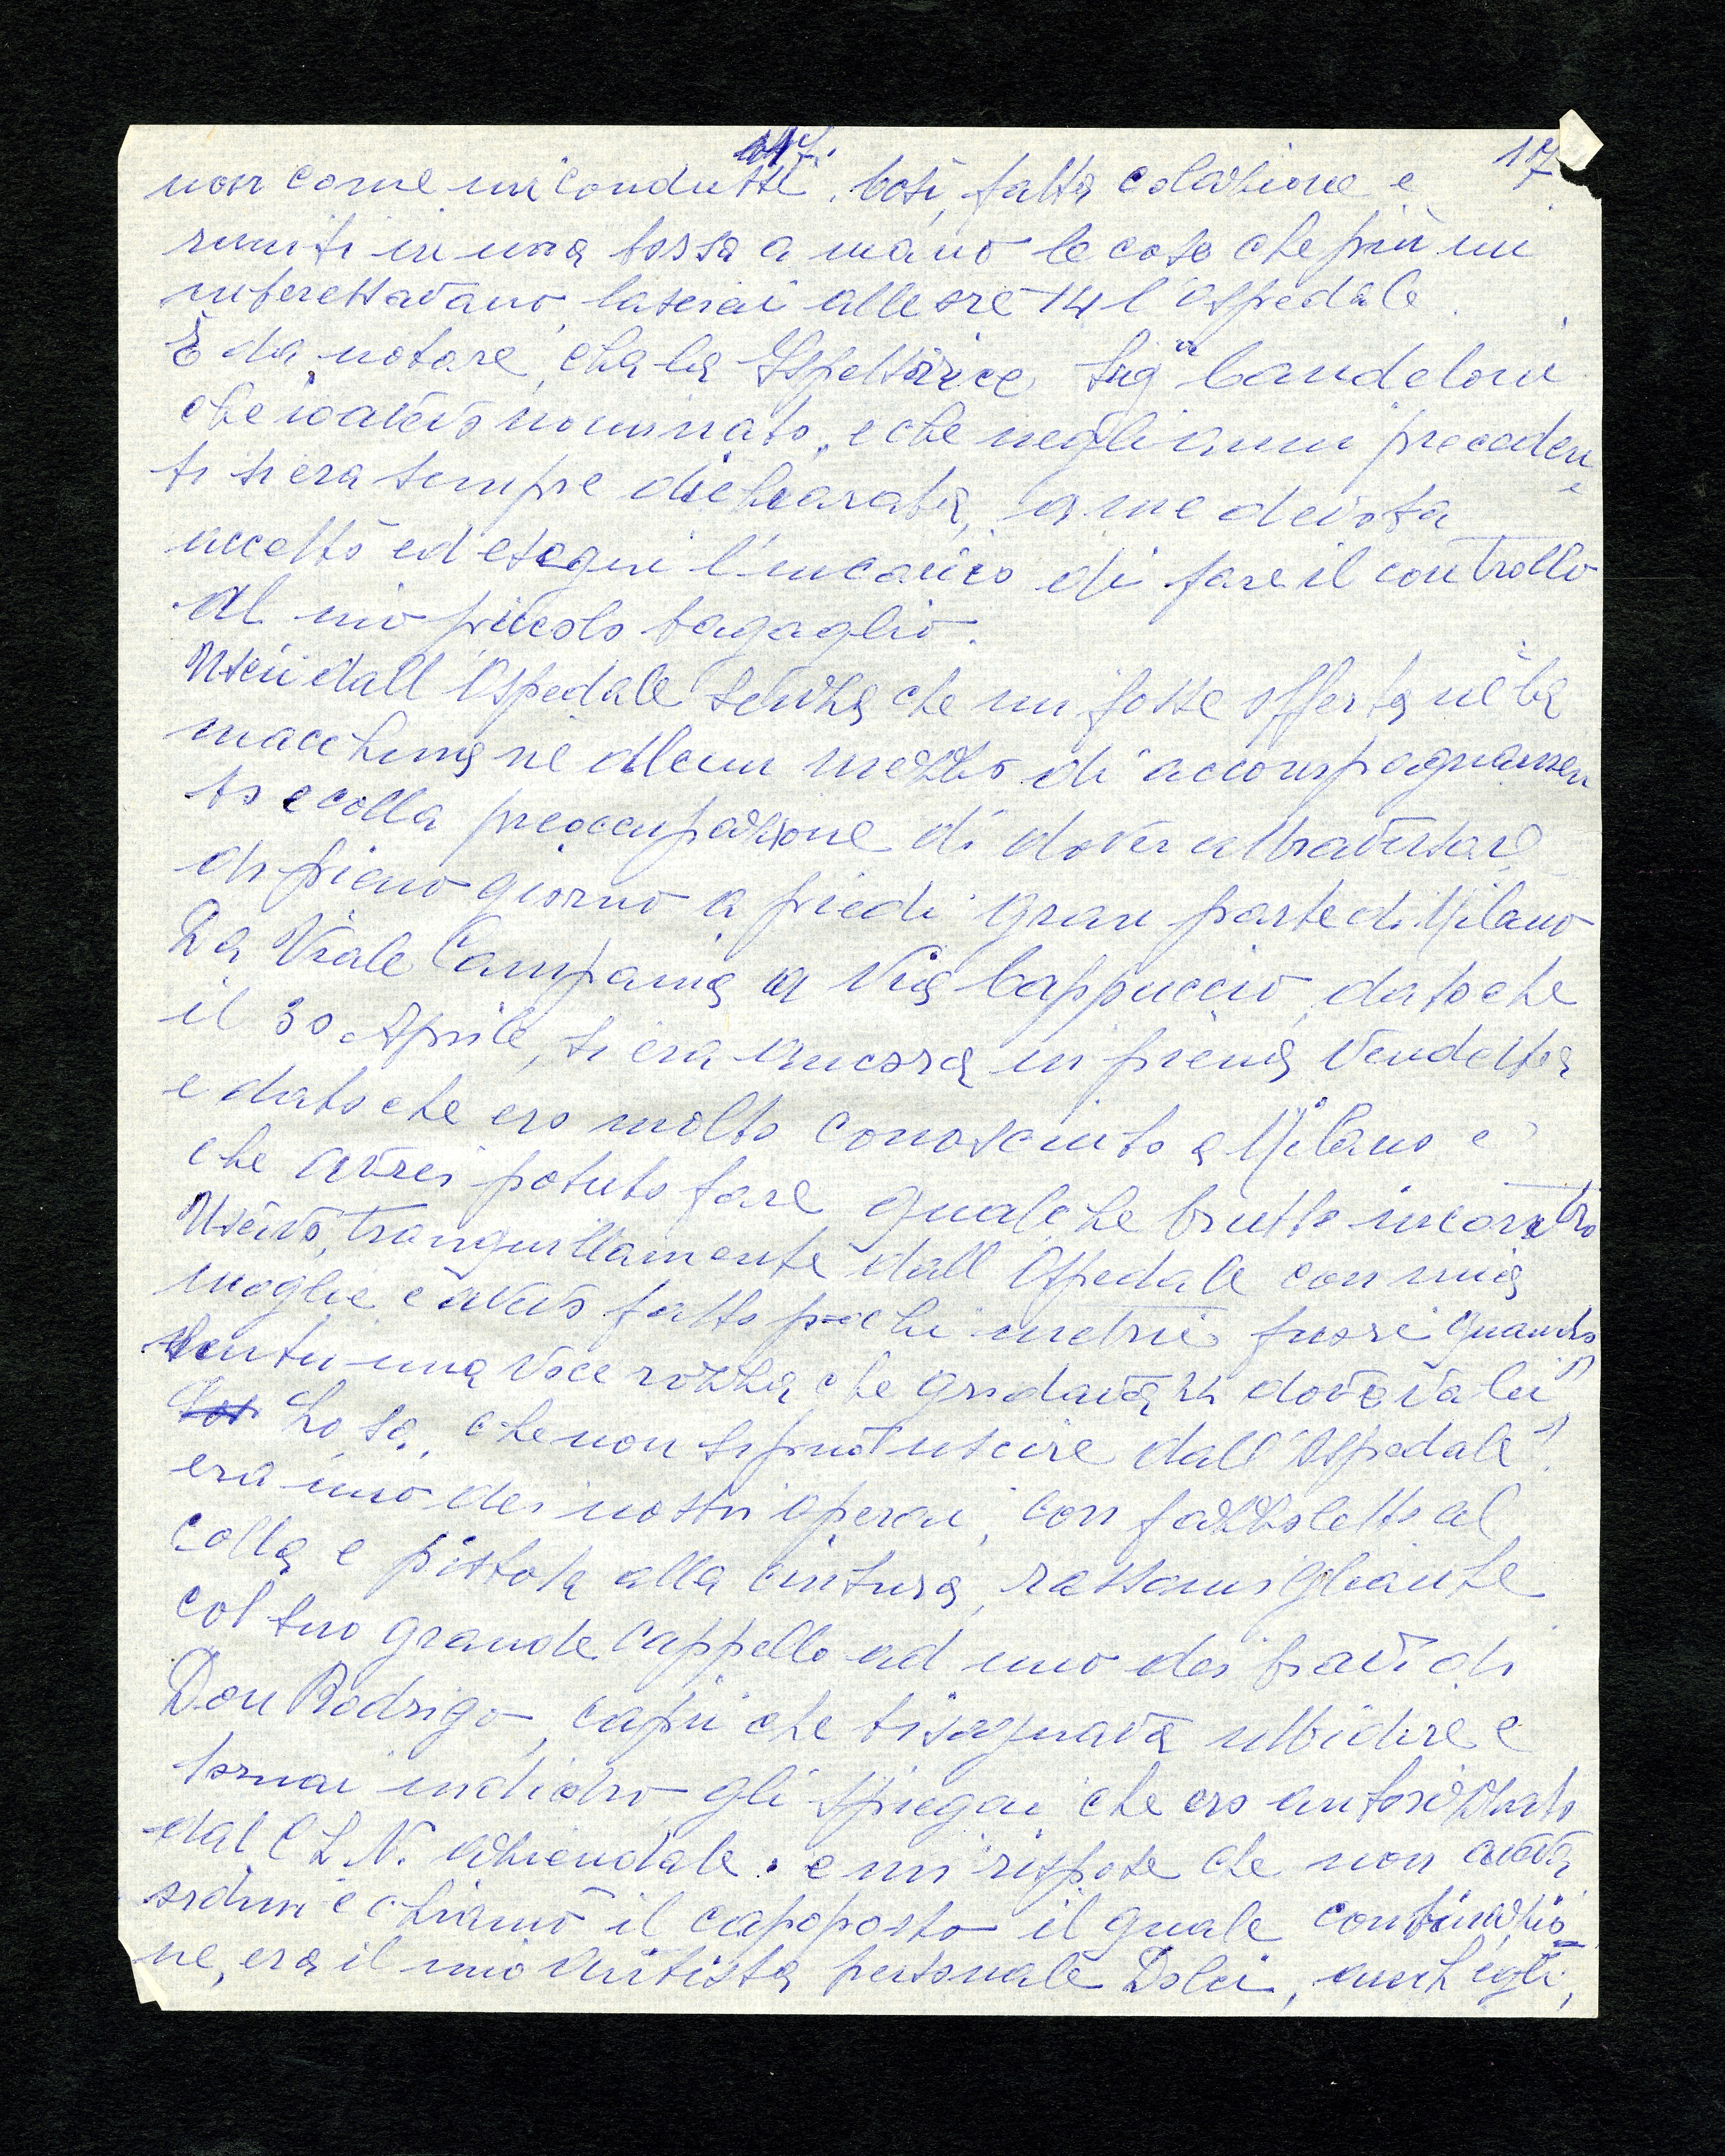 17
non come mi condussi. Così, fatta colazione e
riuniti in una borsa a mano le cose che più mi
interessavano, lasciai alle ore 14 l'ospedale.
È da notare, che la Ispettrice, Sig.na Candeloni
che io avevo nominato, e che negli anni preceden
ti si era sempre dichiarata, a me devota
accettò ed eseguì l'incarico di fare il controllo
al mio piccolo bagaglio.
Uscii dall'Ospedale senza che mi fosse offerta nè la
macchina nè alcun mezzo di accompagnamen
to e colla preoccupazione di dover attraversare
in pieno giorno a piedi gran parte di Milano
Da Viale Campania a Via Cappuccio, dato che
il 30 Aprile, si era ancora in piena vendetta
e dato che ero molto conosciuto a Milano e
che avrei potuto fare qualche brutto incontro
Uscivo, tranquillamente dall'Ospedale con mia
moglie e avevo fatto pochi metri fuori quando
sentii una voce rozza che gridava "dove va lei"
Lo sa, che non si può uscire dall'Ospedale"?
era uno dei nostri operai, con fazzoletto al
collo e pistola alla cintura, rassomigliante
col suo grande cappello ad uno dei bravi di
Don Rodrigo, capii che bisognava ubbidire e
tornai indietro gli spiegai che ero autorizzato
dal C L N. aziendale. e mi rispose che non aveva
ordini e chiamò il capoposto il quale combinazio=
ne, era il mio autista personale Dolci, anch'egli,